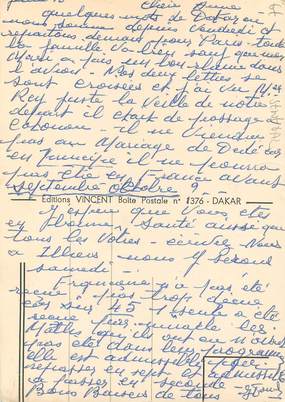 Chère Anne
quelques mots de Dakar où
nous sommes depuis Vendredi et
repartons demain pour Paris toute
la famille Va bien sauf que
Marie a pris un bon rhume dans
l'avion. Mes deux lettres se
sont croisées et j'ai vu Mr
Rey juste la Veille de notre
départ il était de passage à
Cotonou - il ne viendra
pas au Mariage de Dédé car
en principe il ne pourra
pas être en France avant
septembre octobre
Editions VINCENT Boite Postale n° 1376 - DAKAR
J'espère que Vous êtes
en bonne santé ainsi que
tous les Vôtres - écrivez nous
à Illiers nous y serons
samedi -
n'a pas été
reçue pas trop
sur 45 1 seule a été
reçue les
Maths qu'ils ont eu
pas été dans leur programme
elle est admissible
repasser en sept
passer en seconde
Bons Baisers de tous